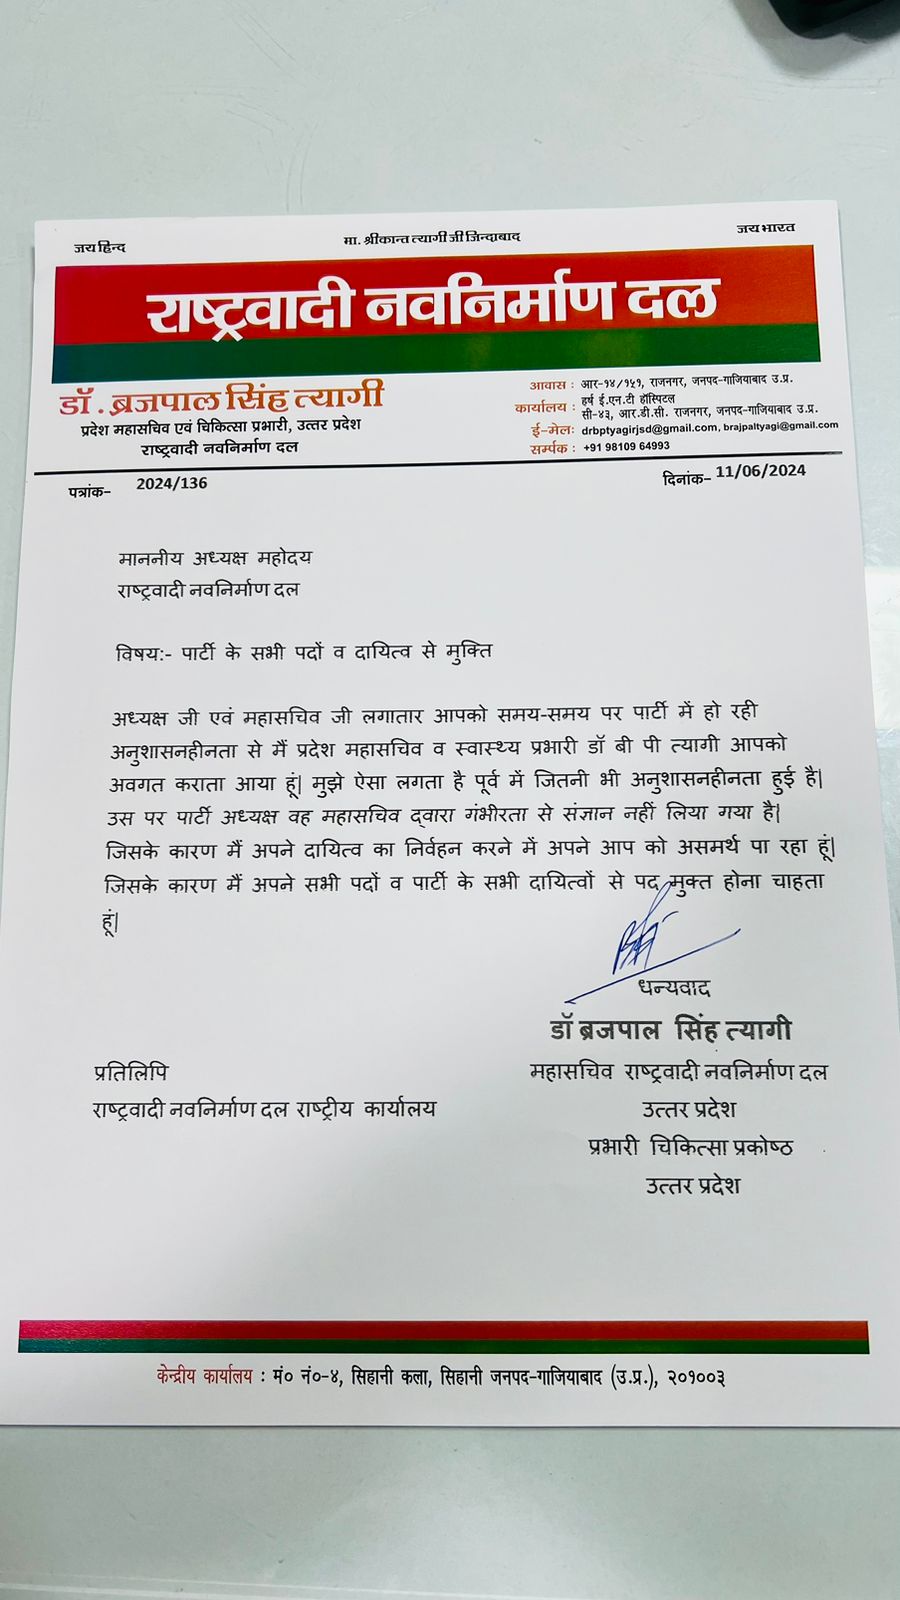 जय हिन्द
मा. श्रीकान्त त्यागी जी जिन्दाबाद
जय भारत
राष्ट्रवादी नवनिर्माण दल
डॉ. ब्रजपाल सिंह त्यागी
प्रदेश महासचिव एवं चिकित्सा प्रभारी, उत्तर प्रदेश
राष्ट्रवादी नवनिर्माण दल
आवास : आर-१४/१५१, राजनगर, जनपद-गाजियाबाद उ.प्र.
कार्यालय : हर्ष ई.एन.टी हॉस्पिटल
सी-४३, आर.डी.सी. राजनगर, जनपद-गाजियाबाद उ.प्र.
ई-मेलः drbptyagirjsd@gmail.com, brajpaltyagi@gmail.com
सर्म्पक : +91 98109 64993
पत्रांक- 2024/136
दिनांक- 11/06/2024
माननीय अध्यक्ष महोदय
राष्ट्रवादी नवनिर्माण दल
विषय:- पार्टी के सभी पदों व दायित्व से मुक्ति
अध्यक्ष जी एवं महासचिव जी लगातार आपको समय-समय पर पार्टी में हो रही
अनुशासनहीनता से मैं प्रदेश महासचिव व स्वास्थ्य प्रभारी डॉ बी पी त्यागी आपको
अवगत कराता आया हूं| मुझे ऐसा लगता है पूर्व में जितनी भी अनुशासनहीनता हुई है|
उस पर पार्टी अध्यक्ष वह महासचिव द्वारा गंभीरता से संज्ञान नहीं लिया गया है|
जिसके कारण मैं अपने दायित्व का निर्वहन करने में अपने आप को असमर्थ पा रहा हूं|
जिसके कारण मैं अपने सभी पदों व पार्टी के सभी दायित्वों से पद मुक्त होना चाहता
हूं|
धन्यवाद
डॉ ब्रजपाल सिंह त्यागी
महासचिव राष्ट्रवादी नवनिर्माण दल
उत्तर प्रदेश
प्रभारी चिकित्सा प्रकोष्ठ
उत्तर प्रदेश
प्रतिलिपि
राष्ट्रवादी नवनिर्माण दल राष्ट्रीय कार्यालय
केन्द्रीय कार्यालय : मं० नं०-४, सिहानी कला, सिहानी जनपद-गाजियाबाद (उ.प्र.), २०१००३